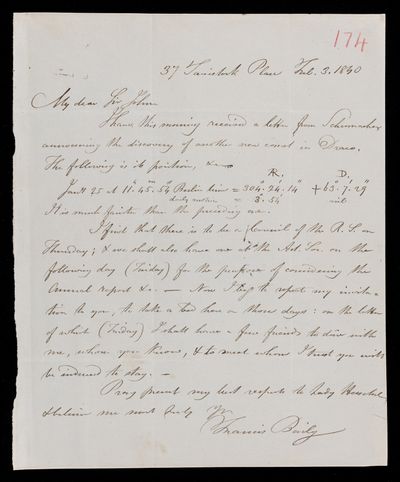 174
37 Tavistock Place Feb. 3. 1840
My dear Sir John
I have this morning received a letter from Schumacher
announcing the discovery of another new comet in Draco.
The following is its position, &c
Jany 25 at 11h. 45m. 54s Berlin time = 304° 24' 14" + 63° 7' 29"
AR. D.
daily motion = 3. 54
It is much fainter than the preceding one.
I find that there is to be a Council of the R. S. on
Thursday; & we shall also have one at the Ast. Soc. on the
following day (Friday) for the purpose of considering the
Annual report &c. — Now I beg to repeat my invita-
tion to you, to take a bed here on those days: on the latter
of which (Friday) I shall have a few friends to dine with
me, whom you know, & to meet whom I trust you will
be induced to stay. —
Pray present my best respects to Lady Herschel
& believe me most truly Yrs
Francis Baily